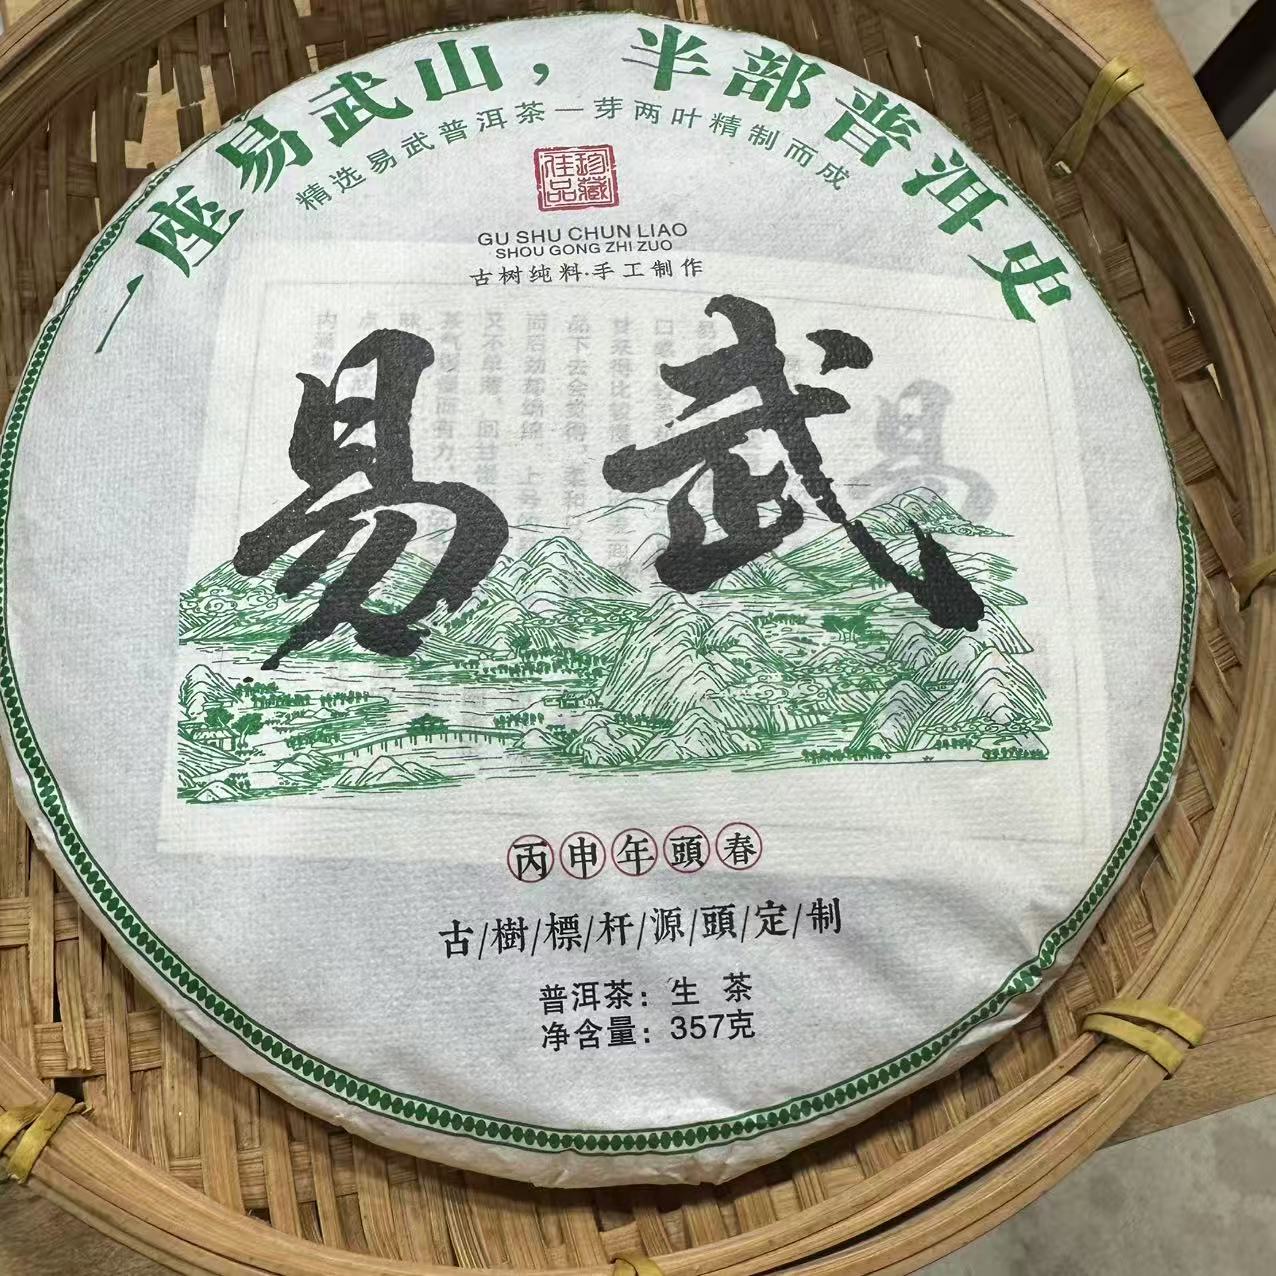 一座易武山，半部普洱史
精选易武普洱茶一芽两叶精制而成
珍藏佳品
GU SHU CHUN LIAO
SHOU GONG ZHI ZUO
古树纯料·手工制作
易武
丙申年頭春
古/樹/標/杆/源/頭/定/制
普洱茶：生 茶
净含量：357克